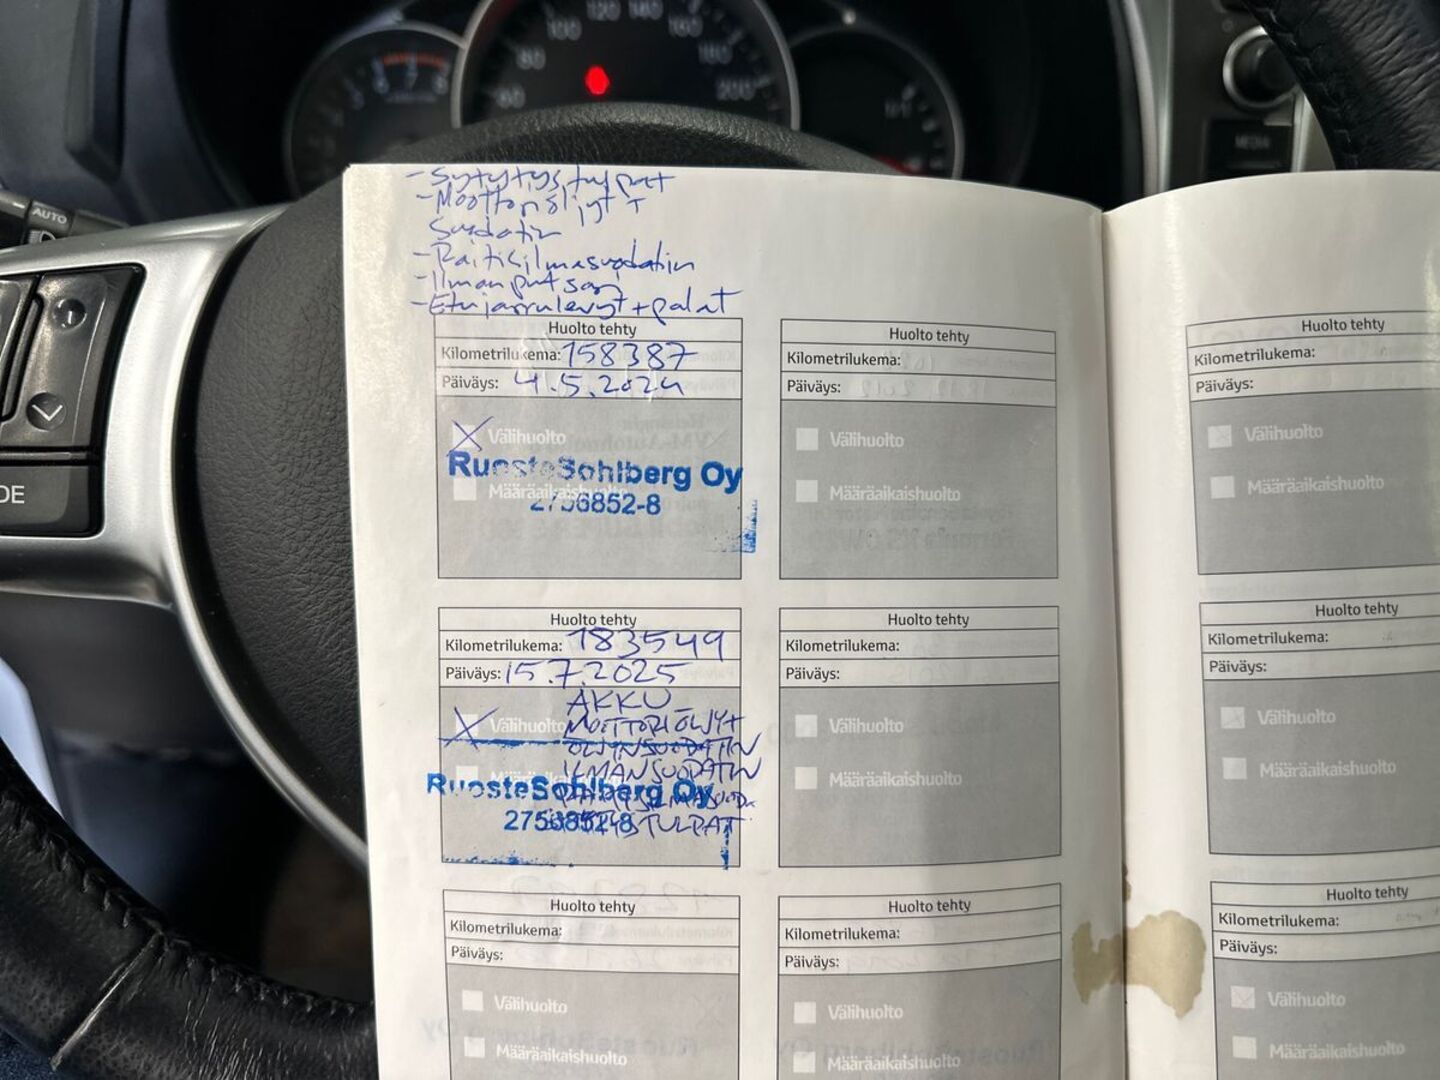 60
80
100
120
140
160
180
200
6
7
8
1/1
AUTO
MEDIA
DE
- Sytytystulpat
- Moottoriöljyt +
Suodatin
- Raitisilmasuodatin
- Ilmanputsari
- Etujarrulevyt + palat
Huolto tehty
Kilometrilukema: 158387
Päiväys: 4.5.2024
Välihuolto
Määräaikaishuolto
RuosteSohlberg Oy
2756852-8
Huolto tehty
Kilometrilukema:
Päiväys:
Välihuolto
Määräaikaishuolto
Huolto tehty
Kilometrilukema:
Päiväys:
Välihuolto
Määräaikaishuolto
Huolto tehty
Kilometrilukema: 183549
Päiväys: 15.7.2025
AKKU
Välihuolto
MOOTTORIÖLJYT
ÖLJYNSUODATIN
ILMANSUODATIN
RuosteSohlberg Oy
2756852-8
TULPAT
Huolto tehty
Kilometrilukema:
Päiväys:
Välihuolto
Määräaikaishuolto
Huolto tehty
Kilometrilukema:
Päiväys:
Välihuolto
Määräaikaishuolto
Huolto tehty
Kilometrilukema:
Päiväys:
Välihuolto
Määräaikaishuolto
Huolto tehty
Kilometrilukema:
Päiväys:
Välihuolto
Määräaikaishuolto
Huolto tehty
Kilometrilukema:
Päiväys:
Välihuolto
Määräaikaishuolto